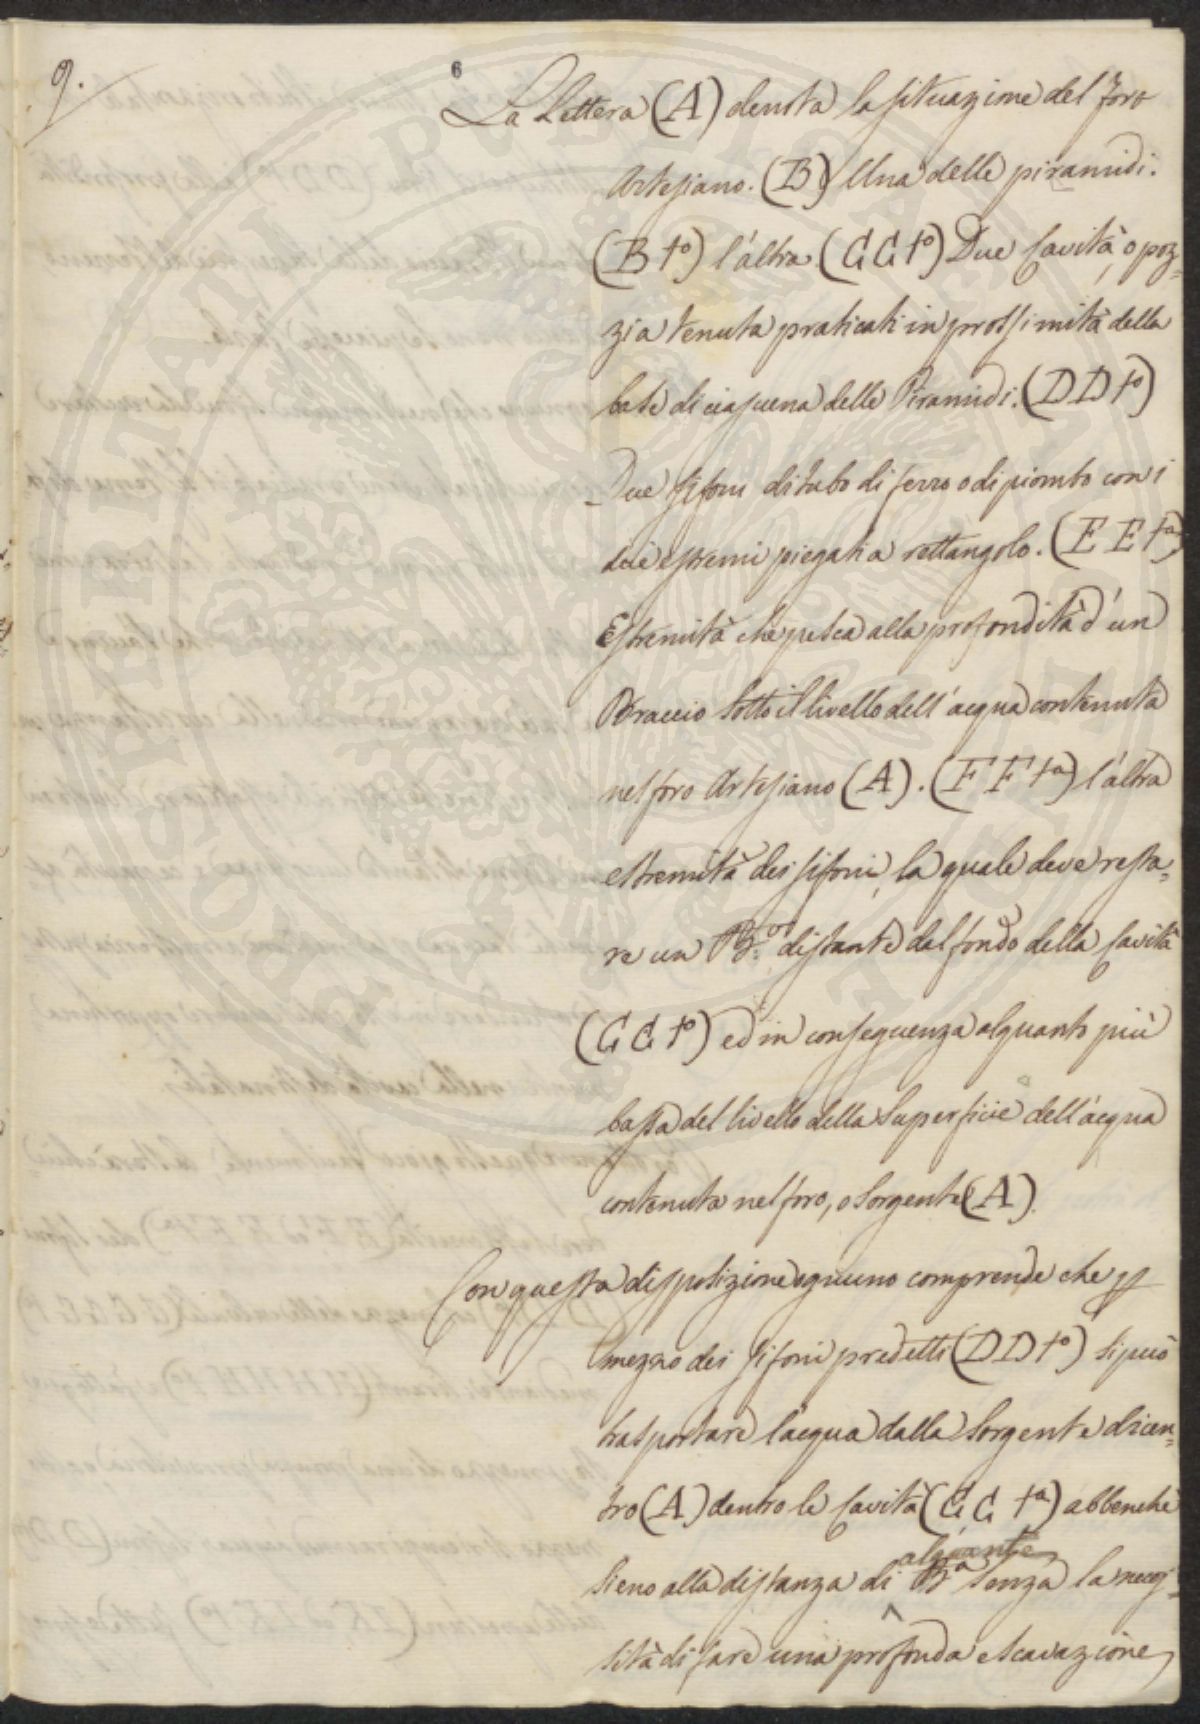 9.
6
La Lettera (A) denota la situazione del foro
Artesiano. (B) Una delle piramidi.
(B 1º) l'altra (C C 1º) Due Cavità, o poz=
zi a tenuta praticati in prossimità della
base di ciascuna delle Piramidi. (D D 1º)
Due sifoni di tubo di ferro o di piombo con i
due estremi piegati a rettangolo. (E E 1ª)
Estremità che pesca alla profondità d'un
Braccio sotto il livello dell'acqua contenuta
nel foro Artesiano (A). (F F 1ª) l'altra
estremità dei sifoni, la quale deve resta=
re un B.º distante dal fondo della Cavità
(C C 1º) ed in conseguenza alquanto più
bassa del livello della Superficie dell'acqua
contenuta nel foro, o Sorgente (A).
Con questa disposizione ognuno comprende che p
mezzo dei sifoni predetti (D D 1º) si può
trasportare l'acqua dalla Sorgente di cen=
tro (A) dentro le Cavità (C C 1ª) abbenchè
alquante
sieno alla distanza di Bª senza la neces=
sità di fare una profonda escavazione
PROSPERITATI PUBLICAE